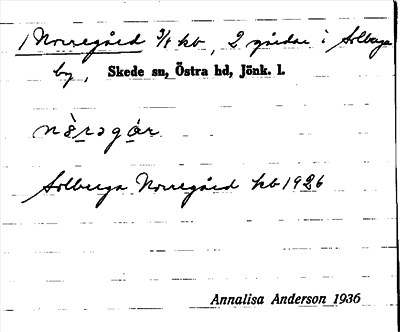 1 Norregård 3/8 kb, 2 gårdar i Solberga
by, Skede sn, Östra hd, Jönk. l.
nèrəgår
Solberga Norregård kb 1926
Annalisa Anderson 1936